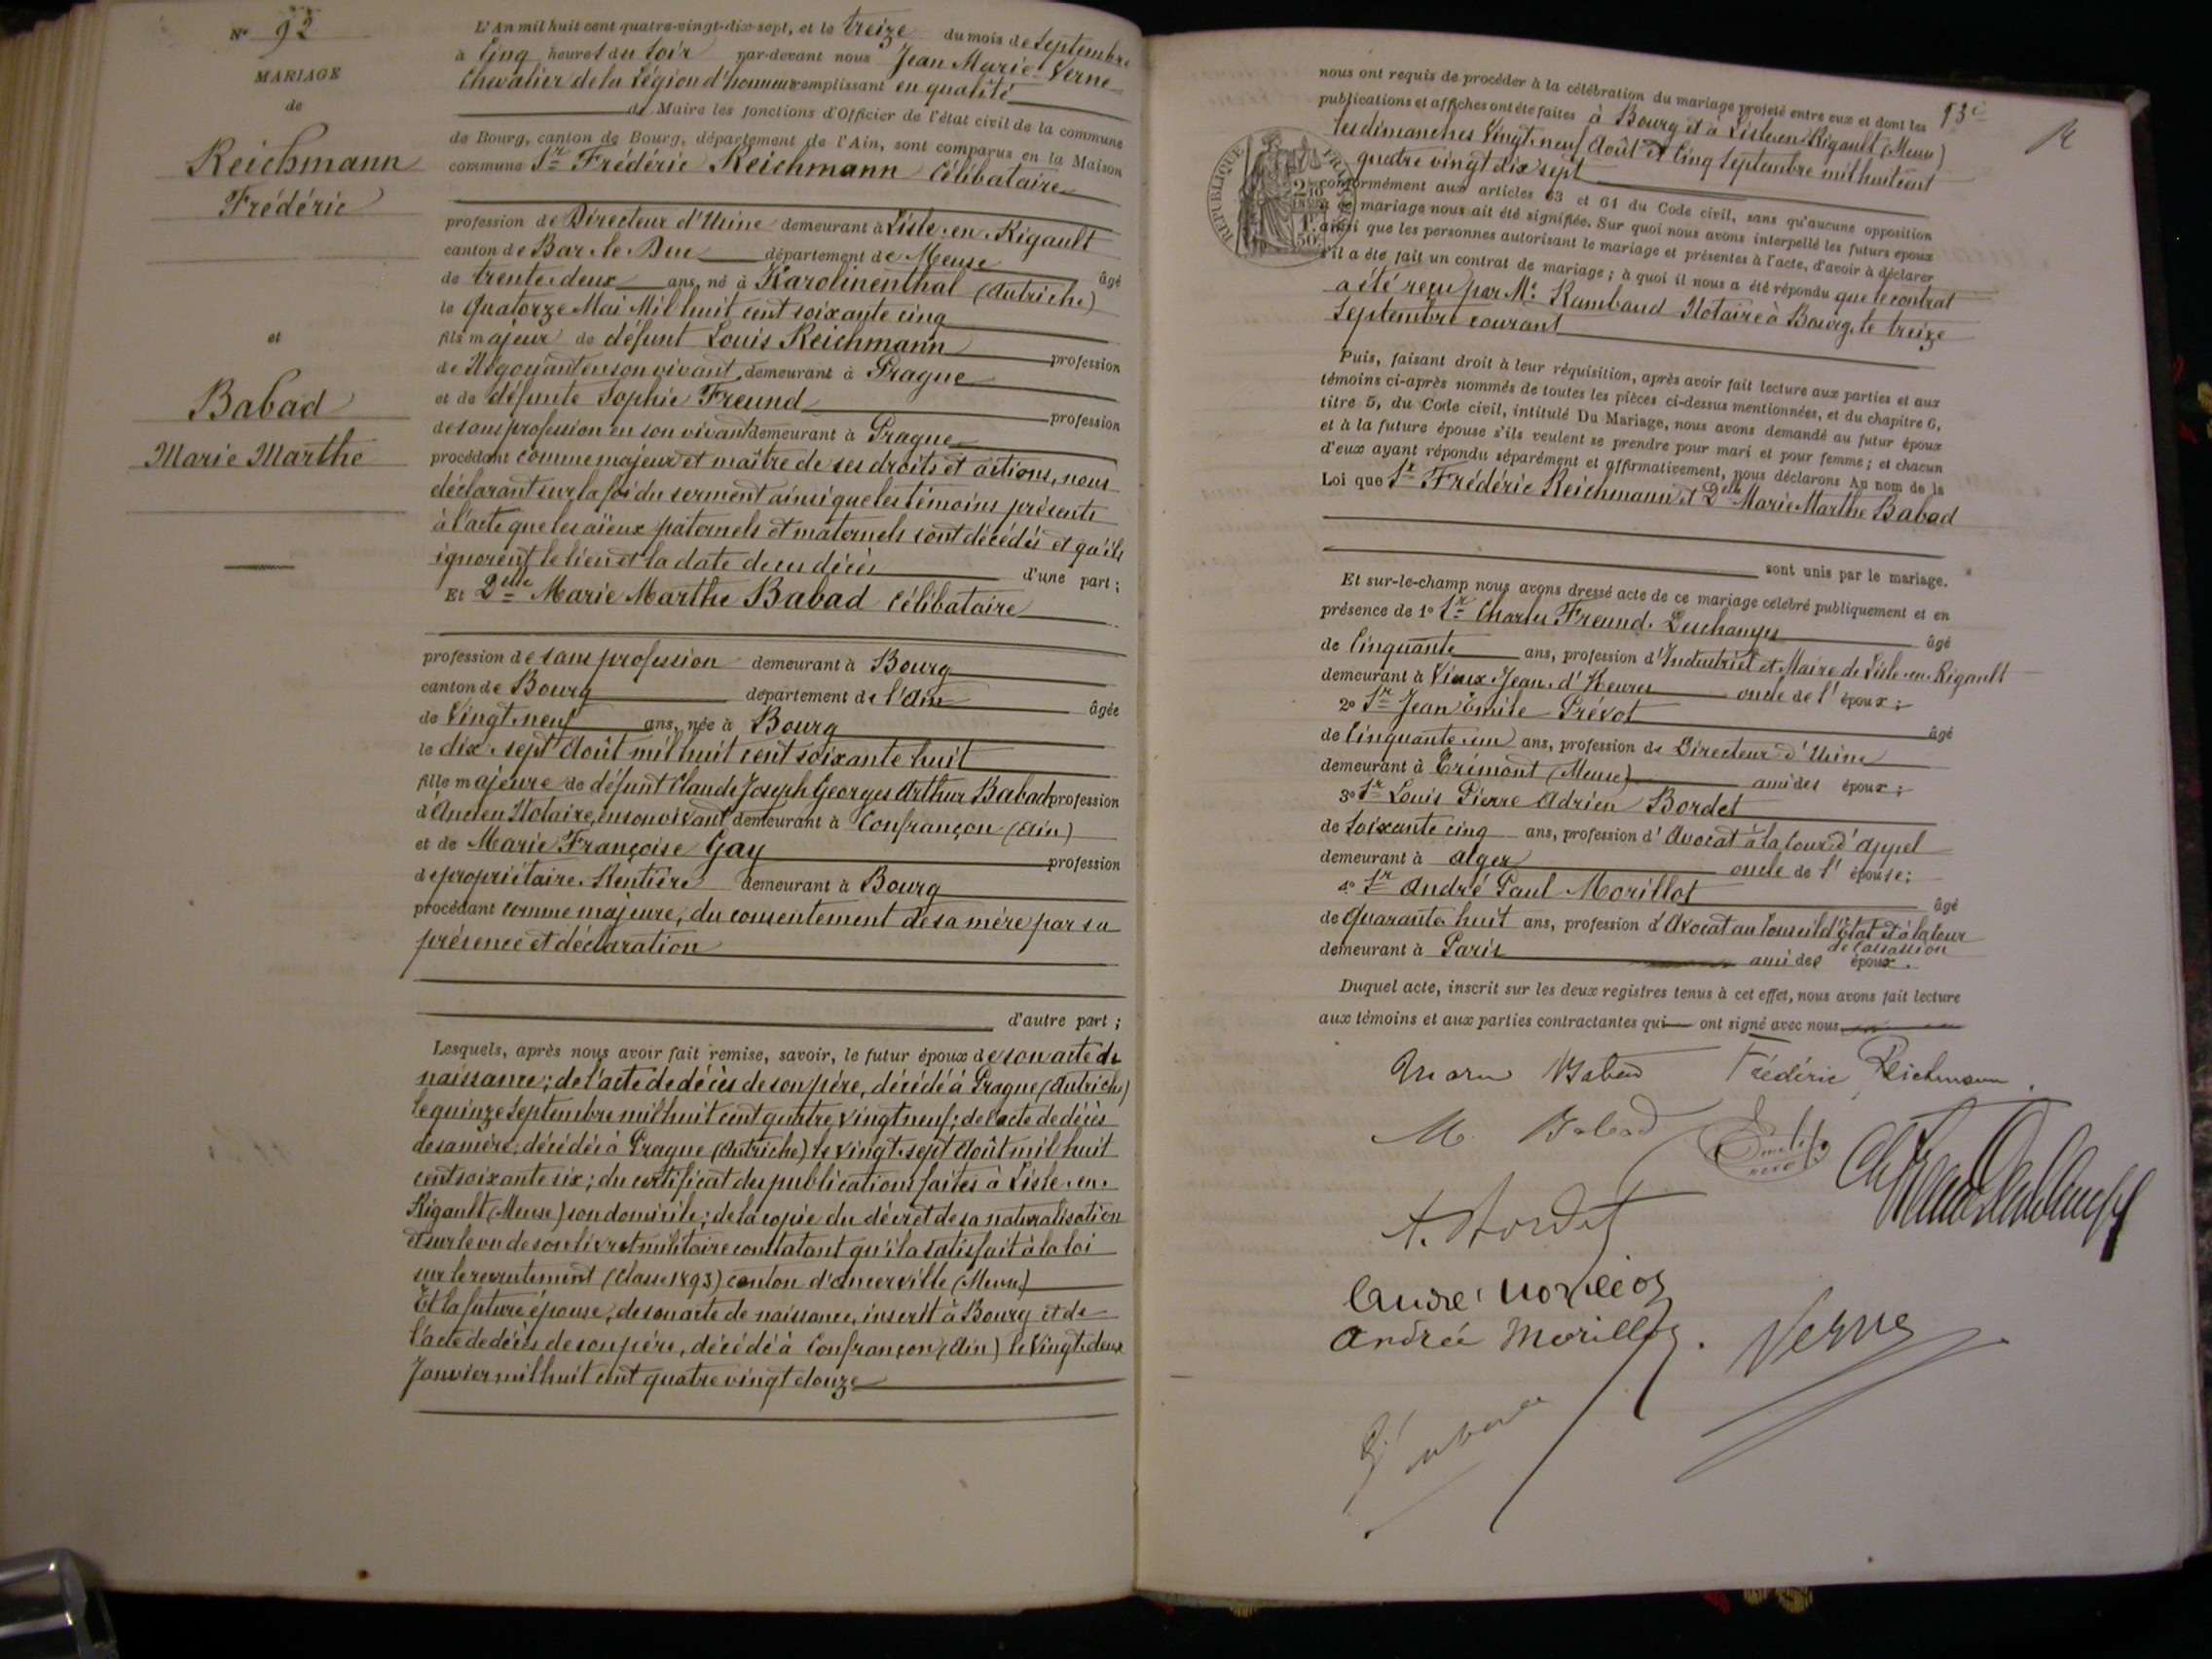 N° 92
MARIAGE
de
Reichmann
Frédéric
et
Babad
Marie Marthe
L'An mil huit cent quatre-vingt-dix-sept, et le treize du mois de Septembre
à Cinq heures du Soir par-devant nous Jean Marie Verne
Chevalier de la Légion d'honneur remplissant en qualité
de Maire les fonctions d'Officier de l'état civil de la commune
de Bourg, canton de Bourg, département de l'Ain, sont comparus en la Maison
commune Sr Frédéric Reichmann Célibataire
profession de Directeur d'Usine demeurant à Lisle-en-Rigault
canton de Bar-le-Duc département de Meuse
de trente-deux ans, né à Karolinenthal (Autriche) âgé
le Quatorze Mai Mil huit cent soixante cinq
fils majeur de défunt Louis Reichmann profession
de Négociant en son vivant, demeurant à Prague
et de défunte Sophie Freund profession
de sans profession en son vivant demeurant à Prague
procédant comme majeur et maître de ses droits et actions, nous
déclarant sur la foi du serment ainsi que les témoins présents
à l'acte que les aïeux paternels et maternels sont décédés et qu'ils
ignorent le lieu et la date de ces décès d'une part;
Et Delle Marie Marthe Babad Célibataire
profession de sans profession demeurant à Bourg
canton de Bourg département de l'Ain âgée
de Vingt-neuf ans, née à Bourg
le dix-sept Août mil huit cent soixante huit
fille majeure de défunt Claude Joseph Georges Arthur Babad profession
d'Ancien Notaire, en son vivant demeurant à Confrançon (Ain)
et de Marie Françoise Gay profession
de propriétaire-Rentière demeurant à Bourg
procédant comme majeure, du consentement de sa mère par sa
présence et déclaration
d'autre part;
Lesquels, après nous avoir fait remise, savoir, le futur époux de son acte de
naissance; de l'acte de décès de son père, décédé à Prague (Autriche)
le quinze Septembre mil huit cent quatre vingt neuf; de l'acte de décès
de sa mère, décédée à Prague (Autriche) le vingt-sept Août mil huit
cent soixante six; du certificat des publications faites à Lisle-en-
Rigault (Meuse) son domicile; de la copie du décret de sa naturalisation
et sur le vu de son livret militaire constatant qu'il a satisfait à la loi
sur le recrutement (Classe 1893) canton d'Ancerville (Meuse)
Et la future épouse, de son acte de naissance, inscrit à Bourg et de
l'acte de décès de son père, décédé à Confrançon (Ain) le Vingt-deux
Janvier mil huit cent quatre vingt douze
nous ont requis de procéder à la célébration du mariage projeté entre eux et dont les
publications et affiches ont été faites à Bourg et à Lisle-en-Rigault (Meuse)
les dimanches Vingt-neuf Août et Cinq Septembre mil huit cent
quatre vingt dix sept
conformément aux articles 63 et 64 du Code civil, sans qu'aucune opposition
à ce mariage nous ait été signifiée. Sur quoi nous avons interpellé les futurs époux
ainsi que les personnes autorisant le mariage et présentes à l'acte, d'avoir à déclarer
s'il a été fait un contrat de mariage; à quoi il nous a été répondu que le contrat
a été reçu par Me Rambaud Notaire à Bourg, le treize
Septembre courant
Puis, faisant droit à leur réquisition, après avoir fait lecture aux parties et aux
témoins ci-après nommés de toutes les pièces ci-dessus mentionnées, et du chapitre 6,
titre 5, du Code civil, intitulé Du Mariage, nous avons demandé au futur époux
et à la future épouse s'ils veulent se prendre pour mari et pour femme; et chacun
d'eux ayant répondu séparément et affirmativement, nous déclarons Au nom de la
Loi que Sr Frédéric Reichmann et Delle Marie Marthe Babad
sont unis par le mariage.
Et sur-le-champ nous avons dressé acte de ce mariage célébré publiquement et en
présence de 1° Sr Charles Freund-Deschamps âgé
de Cinquante ans, profession d'Industriel et Maire de Lisle-en-Rigault
demeurant à Vieux-Jean-d'Heurs oncle de l'époux;
2° Sr Jean Emile Prévot âgé
de Cinquante-un ans, profession de Directeur d'Usine
demeurant à Trémont (Meuse) ami des époux;
3° Sr Louis Pierre Adrien Bordet
de Soixante cinq ans, profession d'Avocat à la Cour d'appel
demeurant à Alger oncle de l'épouse;
4° Sr André Paul Morillot âgé
de Quarante-huit ans, profession d'Avocat au Conseil d'Etat et à la Cour
de Cassassion
demeurant à Paris ami des époux.
Duquel acte, inscrit sur les deux registres tenus à cet effet, nous avons fait lecture
aux témoins et aux parties contractantes qui ont signé avec nous
Babad Frédéric Reichmann
M. Babad
A. Bordet
André Morillot
Andrée Morillot.
Verne